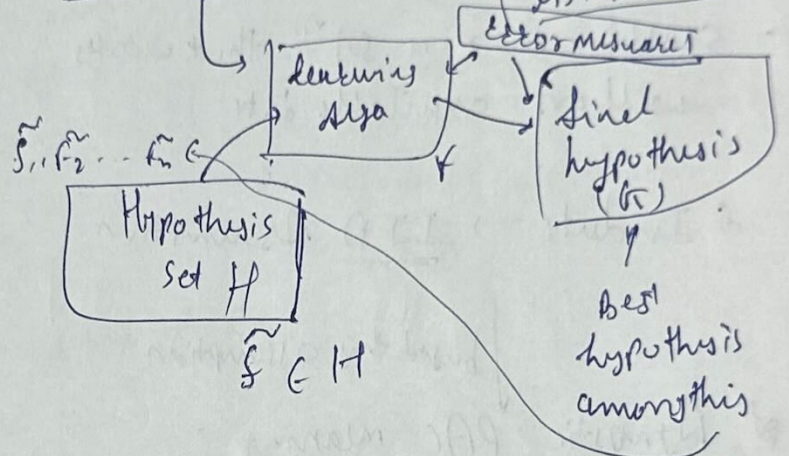 Error mesuares
learning
Algo
final
hypothesis
(G)
f̃₁, f̃₂ ... f̃n ∈
Hypothesis
set H
f̃ ∈ H
Best
hypothesis
among this